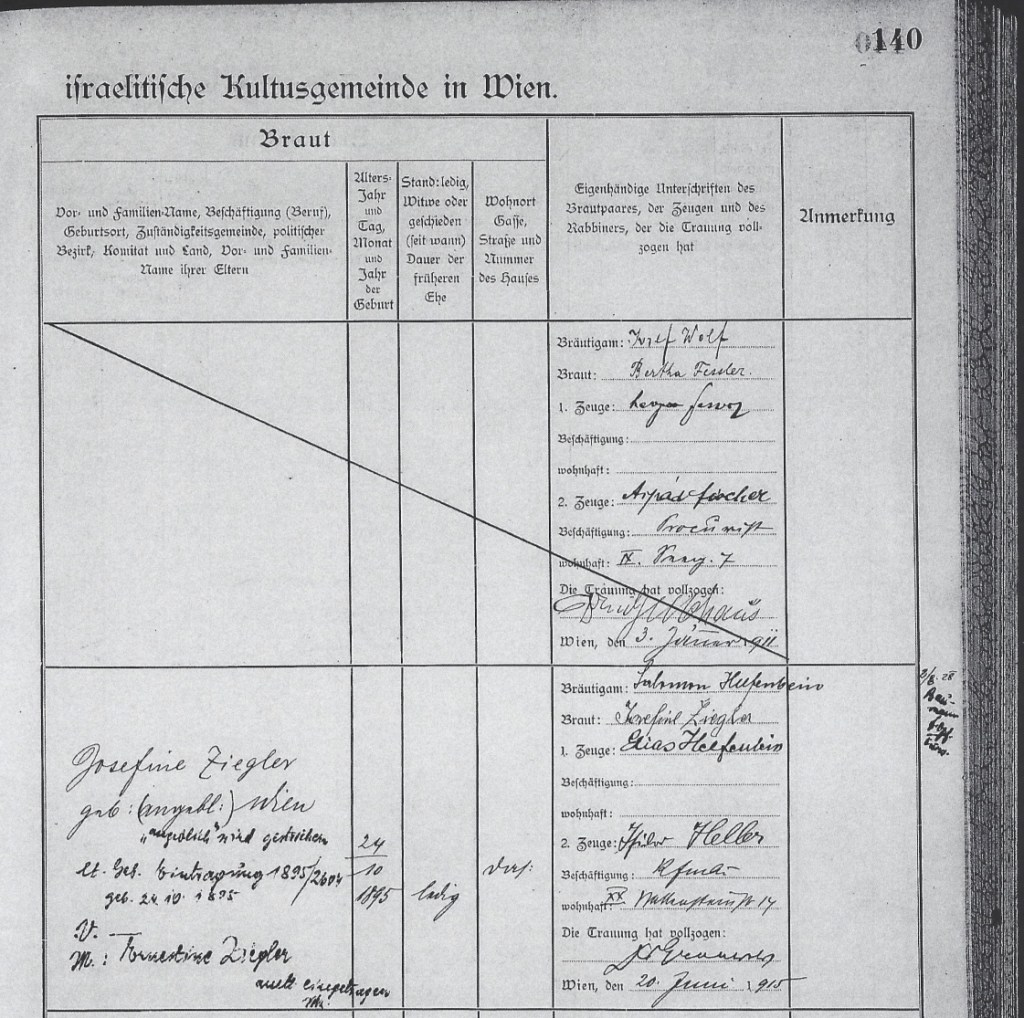 140
israelitische Kultusgemeinde in Wien.
Braut
Vor- und Familien-Name, Beschäftigung (Beruf),
Geburtsort, Zuständigkeitsgemeinde, politischer
Bezirk, Komitat und Land, Vor- und Familien-
Name ihrer Eltern
Alters-
Jahr
und
Tag,
Monat
und
Jahr
der
Geburt
Stand: ledig,
Witwe oder
geschieden
(seit wann)
Dauer der
früheren
Ehe
Wohnort
Gasse,
Straße und
Nummer
des Hauses
Eigenhändige Unterschriften des
Brautpaares, der Zeugen und des
Rabbiners, der die Trauung voll-
zogen hat
Anmerkung
Bräutigam: Josef Wolf
Braut: Bertha Fessler.
1. Zeuge:
Beschäftigung:
wohnhaft:
2. Zeuge: Arpád Fischer
Beschäftigung: Procurist
wohnhaft: IX. 7
Die Trauung hat vollzogen:
Wien, den 3. Jänner 1911
Josefine Ziegler
geb: (angebl:) Wien
"angeblich" wird gestrichen
lt. Geb. Eintragung 1895/2604
geb. 24.10.1895
V. —
M.: Ernestine Ziegler
eingetragen
24
10
1895
ledig
das:
Bräutigam: Salomon Helfenbein
Braut: Josefine Ziegler
1. Zeuge: Elias Helfenbein
Beschäftigung:
wohnhaft:
2. Zeuge: Isidor Heller
Beschäftigung: Kfm
wohnhaft: XX 14
Die Trauung hat vollzogen:
Wien, den 20. Juni 1915